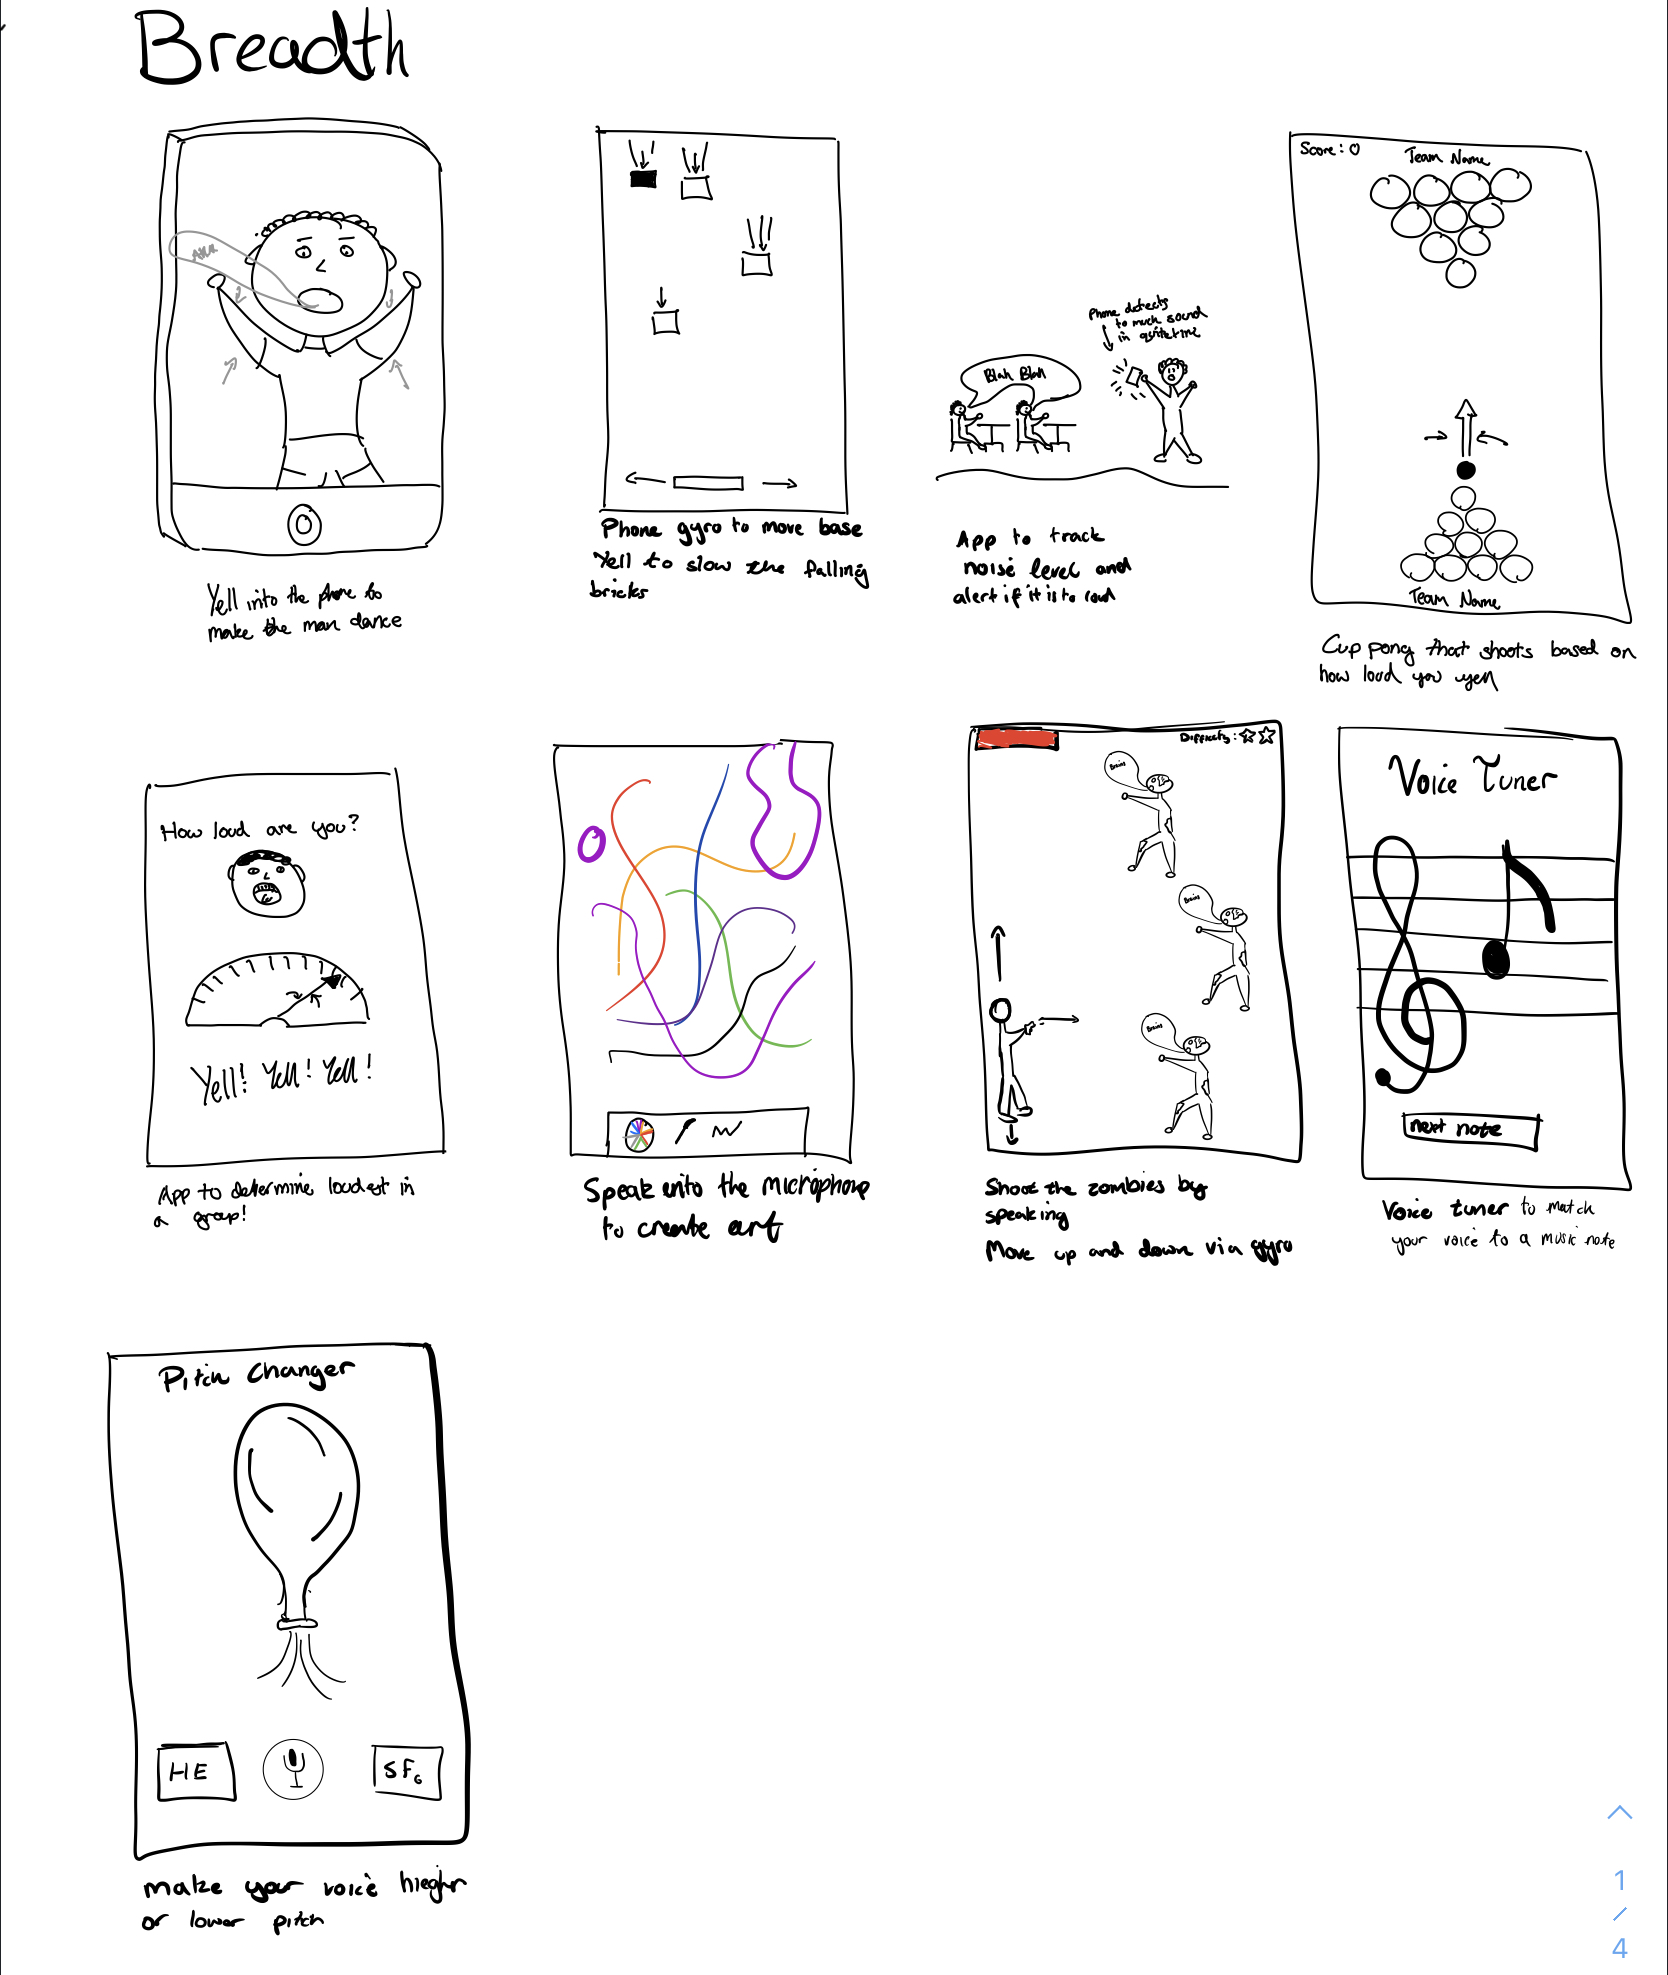 Breadth
AHH
Yell into the phone to
make the man dance
Phone gyro to move base
Yell to slow the falling
bricks
Phone detects
to much sound
in quitetime
Blah Blah
App to track
noise level and
alert if it is to loud
Score: 0
Team Name
Team Name
Cup pong that shoots based on
how loud you yell
How loud are you?
Yell! Yell! Yell!
App to determine loudest in
a group!
Speak into the microphone
to create art
Difficulty:
Brains
Brains
Brains
Shoot the zombies by
speaking
Move up and down via gyro
Voice Tuner
next note
Voice tuner to match
your voice to a music note
Pitch Changer
HE
SF₆
make your voice hiegher
or lower pitch
1
/
4